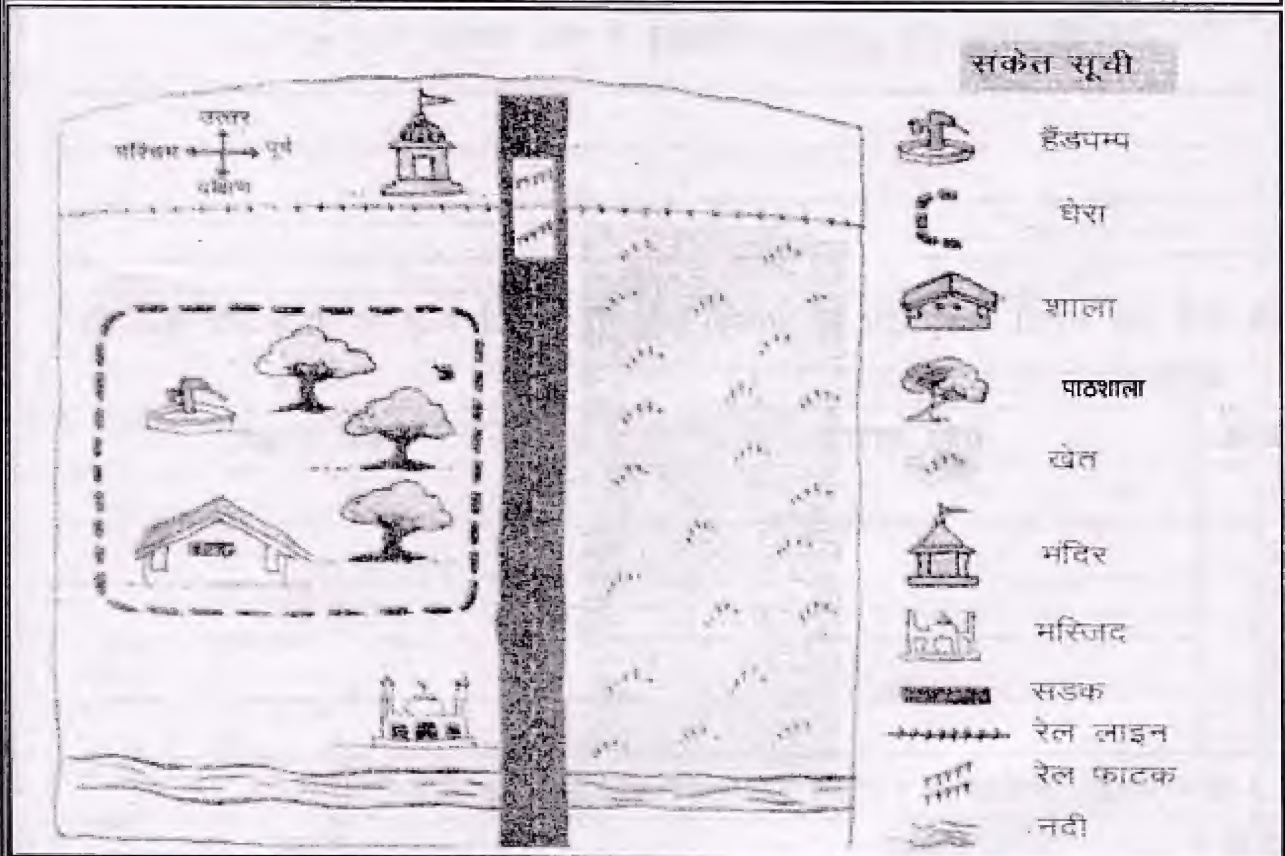 संकेत सूची
उत्तर
पश्चिम
पूर्व
दक्षिण
हैंडपम्प
घेरा
शाला
पाठशाला
खेत
मंदिर
मस्जिद
सडक
रेल लाइन
रेल फाटक
नदी